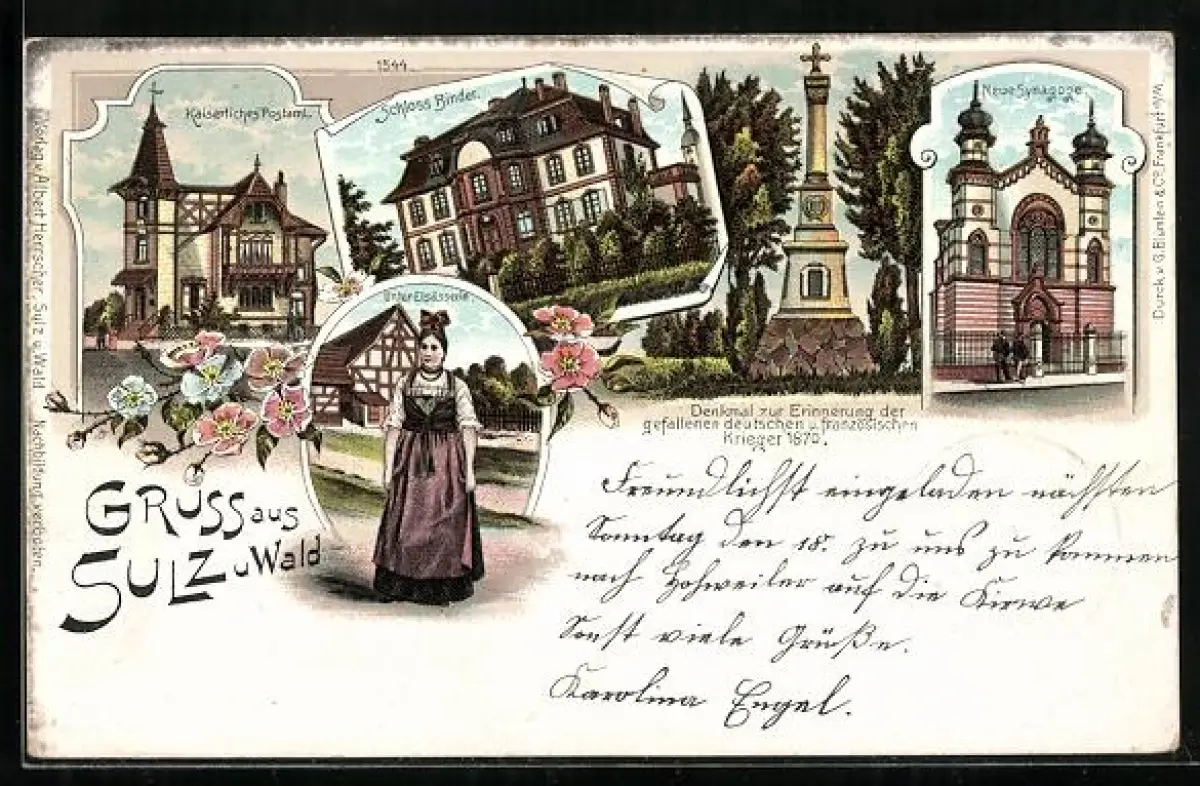 1544
Kaiserliches Postamt.
Schloss Binder.
Neue Synagoge
Unter Elsässerin.
Denkmal zur Erinnerung der
gefallenen deutschen u. französischen
Krieger 1870.
GRUSS aus
SULZ u Wald
Verlag v. Albert Herrscher, Sulz u. Wald Nachbildung verboten.
Durck v. G. Blümlen & Co. Frankfurt
Freundlichst eingeladen nächsten
Sonntag den 18. zu uns zu kommen
nach Hohweiler auf die Kirwe
Sonst viele Grüße.
Karolina Engel.